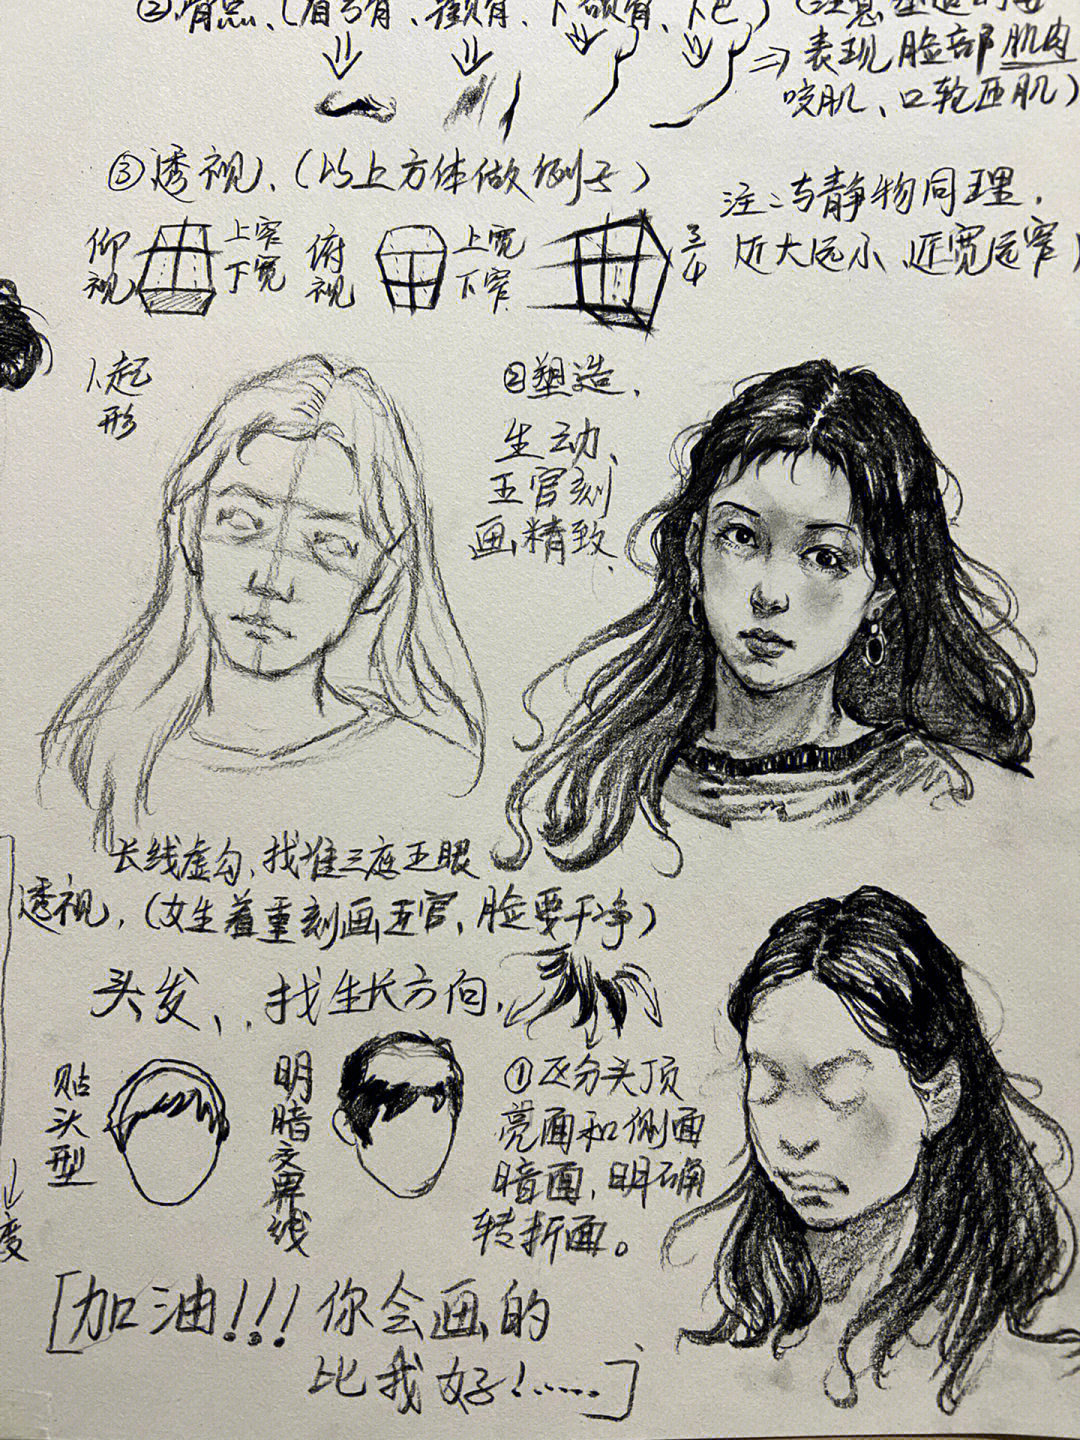 ②骨点、(眉弓骨、颧骨、下颌骨、下巴)
⇒表现脸部肌肉
咬肌、口轮匝肌)
③透视、(以上方体做例子)
注:与静物同理.
近大远小、近宽远窄
仰视
上窄
下宽
俯视
上宽
下窄
3/4
1、起形
②塑造.
生动、
五官刻
画精致、
长线虚勾、找准三庭五眼
透视.(女生着重刻画五官、脸要干净)
头发、..找生长方向.
贴头型
明暗交界线
①区分头顶
亮面和侧面
暗面.明确
转折面。
度
[加油!!!你会画的
比我好!......]